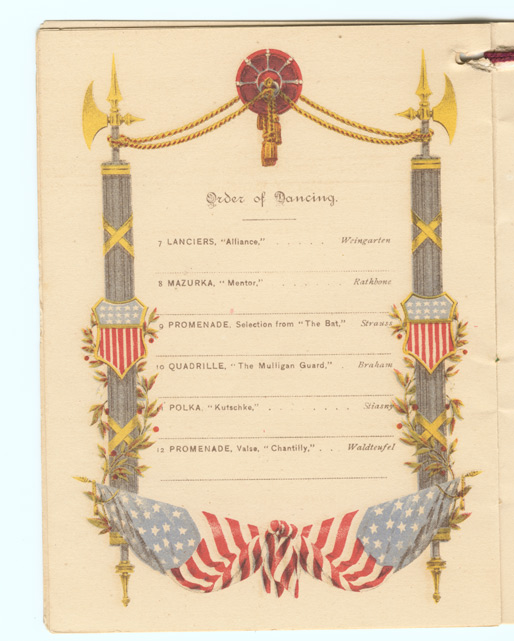 Order of Dancing.
7 LANCIERS, "Alliance," . . . . . . Weingarten
8 MAZURKA, "Mentor," . . . . . . Rathbone
9 PROMENADE, Selection from "The Bat," Strauss
10 QUADRILLE, "The Mulligan Guard," . Braham
POLKA, "Kutschke," . . . . . . . . . Stiasny
12 PROMENADE, Valse, "Chantilly," . . . Waldteufel